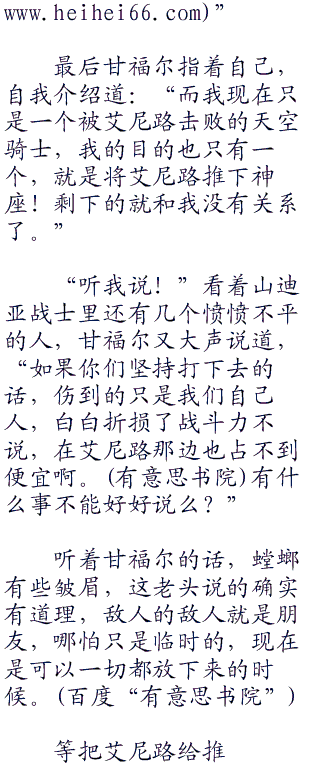 www.heihei66.com)”
最后甘福尔指着自己，
自我介绍道：“而我现在只
是一个被艾尼路击败的天空
骑士，我的目的也只有一
个，就是将艾尼路推下神
座！剩下的就和我没有关系
了。”
“听我说！”看着山迪
亚战士里还有几个愤愤不平
的人，甘福尔又大声说道，
“如果你们坚持打下去的
话，伤到的只是我们自己
人，白白折损了战斗力不
说，在艾尼路那边也占不到
便宜啊。(有意思书院)有什
么事不能好好说么？”
听着甘福尔的话，螳螂
有些皱眉，这老头说的确实
有道理，敌人的敌人就是朋
友，哪怕只是临时的，现在
是可以一切都放下来的时
候。(百度“有意思书院”)
等把艾尼路给推